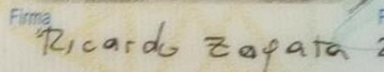 Firma
Ricardo Zapata